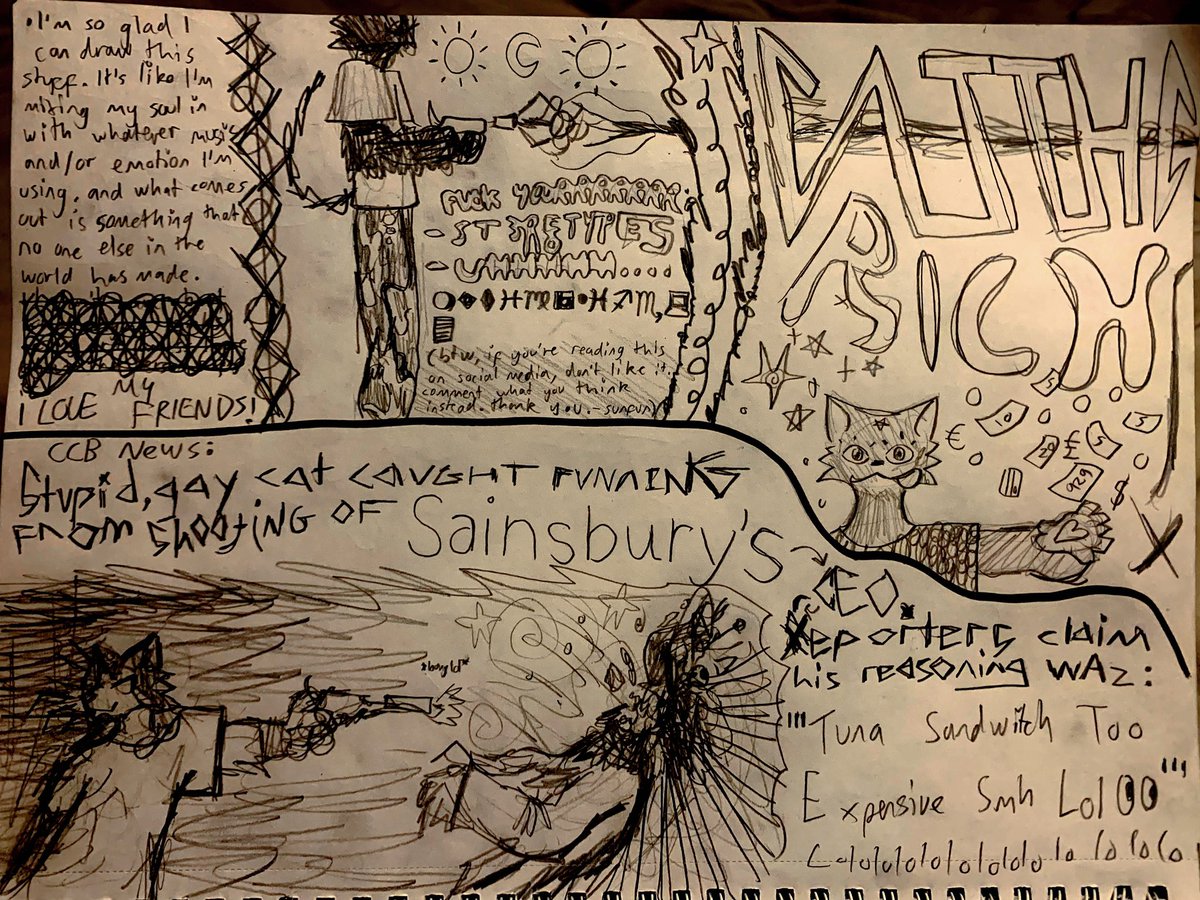 •I'm so glad I
can draw this
stuff. It's like I'm
mixing my soul in
with whatever music
and/or emotion I'm
using, and what comes
out is something that
no one else in the
world has made.
I LOVE MY FRIENDS!
FUCK YOURRRRRRR
-STERETYPES
-UHHHHH....
(btw, if you're reading this
on social media, don't like it.
comment what you think
instead. thank you. -sunfun)
EAT THA
RICH
€
£
$
5
5
CCB News:
Stupid, gay cat caught FUNNING
FROM Shooting OF Sainsbury's
CEO.
Reporters claim
his reasoning WAz:
"'Tuna Sandwitch Too
Expensive Smh Lol00"'
*bang lol*
X